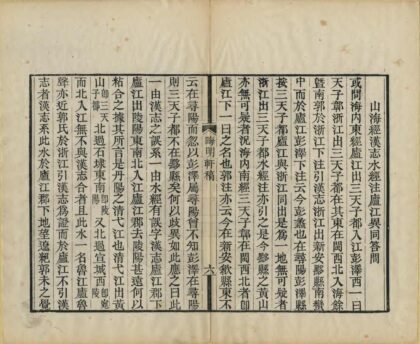 山海經漢志水經注廬江異同答問
或問海內東經廬江出三天子都入江彭澤西一曰
天子鄣浙江出三天子都在其東在閩西北入海餘
暨南郭於浙江下注引漢志浙江出新安黟縣南蠻
中而於廬江彭澤下注云今彭蠡也在尋陽彭澤縣
按三天子都廬江與浙江同出是為一地無可疑者
浙江出三天子都水經注亦引之是今黟縣之黃山
亦無可疑者況海內南經三天子鄣在閩西北者卽
廬江下一曰之名也郭注亦云今在新安歙縣東不
晦明軒稿
六
云在尋陽而忽以彭澤屬尋陽曾不知彭澤在尋陽
則三天子都不在黟縣矣何以歧異如此應之曰此
一由漢志之誤系一由水經有誤字漢志廬江郡下
廬江出陵陽東南北入江廬江郡去陵陽甚遠何以
粘合之據其所言是丹陽之清弋江也清弋江出黃
山卽三天子都北過石埭東南卽陵陽又北過宣城西卽宛陵
而北入江無不與漢志合者且此水一名魯江
聲亦近郭氏於浙江引漢志為證而於廬江不引漢
志者漢志系此水於廬江郡下地望遼絕郭未之覺